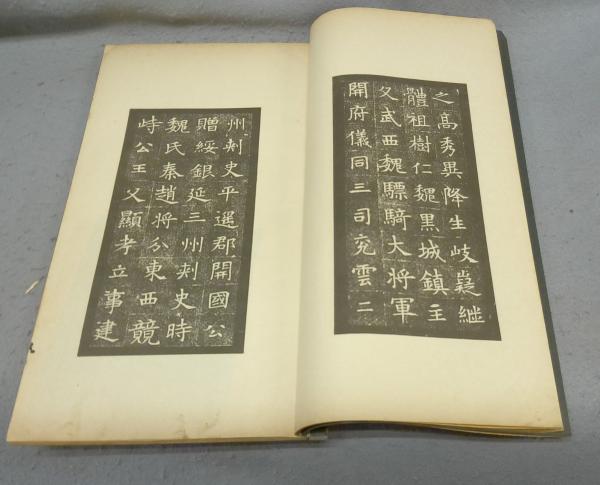 之高秀異降生岐嶷継
體祖樹仁魏黒城鎮主
父武西魏驃騎大将軍
開府儀同三司兖雲二
州刾史平遥郡開國公
贈綏銀延三州刾史時
魏氏秦趙将分東西競
峙公王父顯考立事建